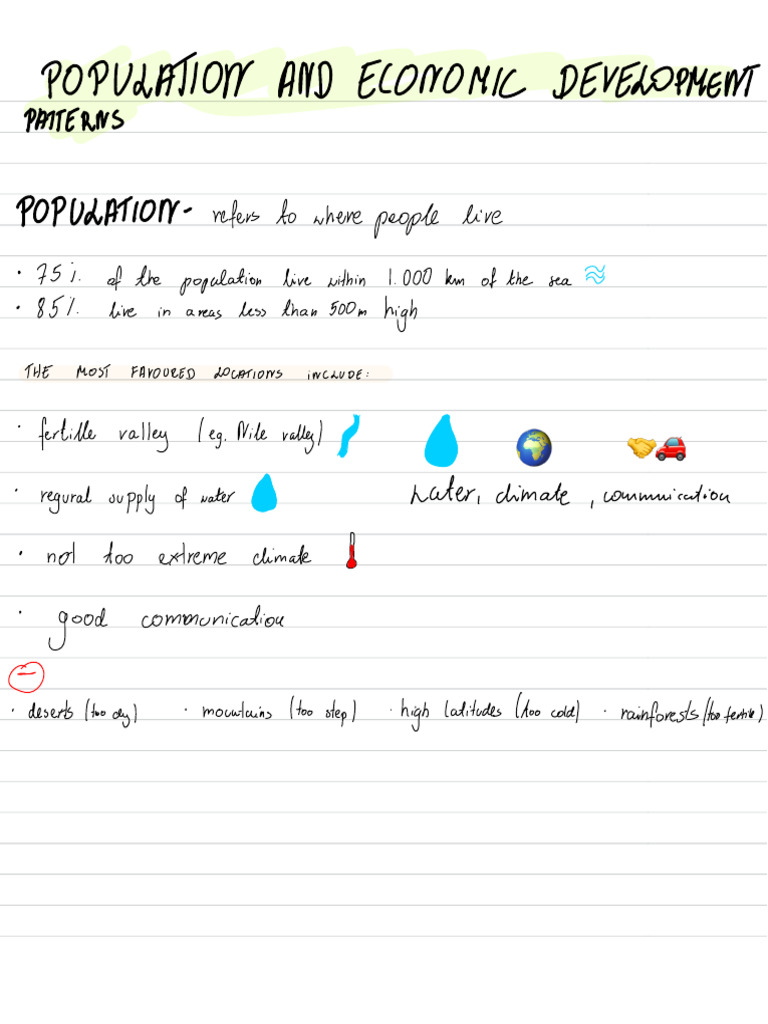 POPULATION AND ECONOMIC DEVELOPMENT
PATTERNS
POPULATION- refers to where people live
· 75%. of the population live within 1.000 km of the sea
· 85%. live in areas less than 500m high
THE MOST FAVOURED LOCATIONS INCLUDE:
· fertille valley (eg. Nile valley)
· regural supply of water
water, climate, communication
· not too extreme climate
· good communication
-
· deserts (too dry) · mountains (too step) · high latitudes (too cold) · rainforests (too fertile)